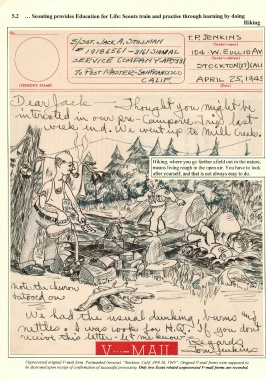 5.2 ... Scouting provides Education for Life: Scouts train and practise through learning by doing
Hiking
S/SGT. JACK A. STILLMAN
19186561 - 216 SIGNAL
SERVICE COMPANY - APO 331
TO POST MASTER - SAN FRANCISCO
CALIF.
(CENSOR'S STAMP)
T. P. JENKINS
(Sender's name)
104 - W. EUCLID AV
(Sender's address)
STOCKTON (27) CALI
APRIL 25, 1945
(Date)
Dear Jack
Thought you might be
interested in our pre-Camporee Trip last
week end. We went up to Mill Creek.
Hiking, where you go further afield out in the nature,
means living rough in the open air. You have to look
after yourself, and that is not always easy to do.
Note the
tatooed on
We had the usual dunking, burns and
nettles. I was cook for H.Q. If you dont
receive this letter - let me know.
Regards
Tom Jenkins
V···—MAIL
Unprocessed original V-mail form. Postmarked (reverse) "Stockton, Calif. APR 26, 1945". Original V-mail forms were supposed to
be destroyed upon receipt of confirmation of successful processing. Only two Scouts related unprocessed V-mail forms are recorded.